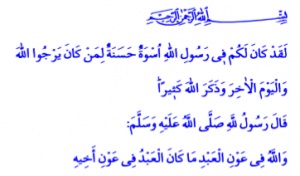 بِسْمِ اللهِ الرَّحْمٰنِ الرَّحِيمِ
لَقَدْ كَانَ لَكُمْ فِي رَسُولِ اللهِ اُسْوَةٌ حَسَنَةٌ لِمَنْ كَانَ يَرْجُوا اللهَ
وَالْيَوْمَ الْاٰخِرَ وَذَكَرَ اللهَ كَثِيراًۜ
قَالَ رَسُولُ للهِ صَلَّى اللهُ عَلَيْهِ وَسَلَّمَ:
وَاللهُ فِي عَوْنِ الْعَبْدِ مَا كَانَ الْعَبْدُ فِي عَوْنِ أَخِيهِ